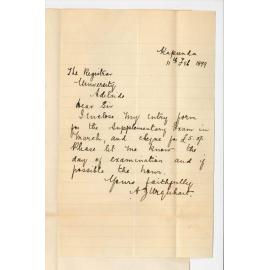 Kapunda
11th Feb 1899
The Registrar
University
Adelaide
Dear Sir
I enclose my entry form
for the Supplementary Exam in
March, and cheque for £5.5/.
Please let me know the
day of examination and if
possible the hour.
Yours faithfully
A J Urquhart